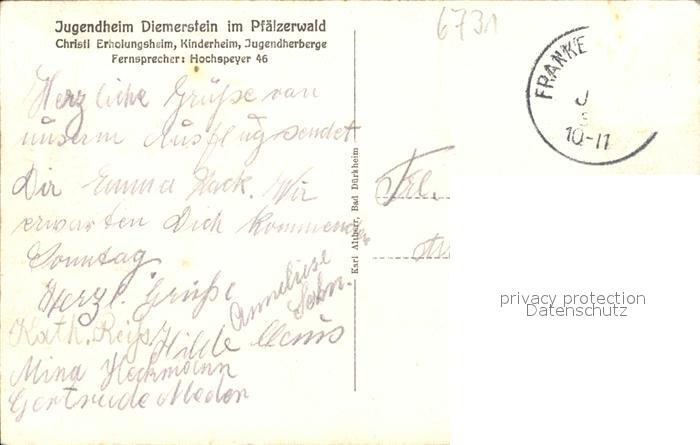 Jugendheim Diemerstein im Pfälzerwald
Christl Erholungsheim, Kinderheim, Jugendherberge
Fernsprecher: Hochspeyer 46
6731
FRANKE
J
10-11
Herzliche Grüße von
unserm Ausflug sendet
Dir Emma Hack. Wir
erwarten Dich kommenden
Sonntag.
Herzl. Grüße
Anneliese
Kath. Reiß
Hilde
Mina Heckmann
Gertrude Meder
Karl Altherr, Bad Dürkheim
Frl.
privacy protection
Datenschutz